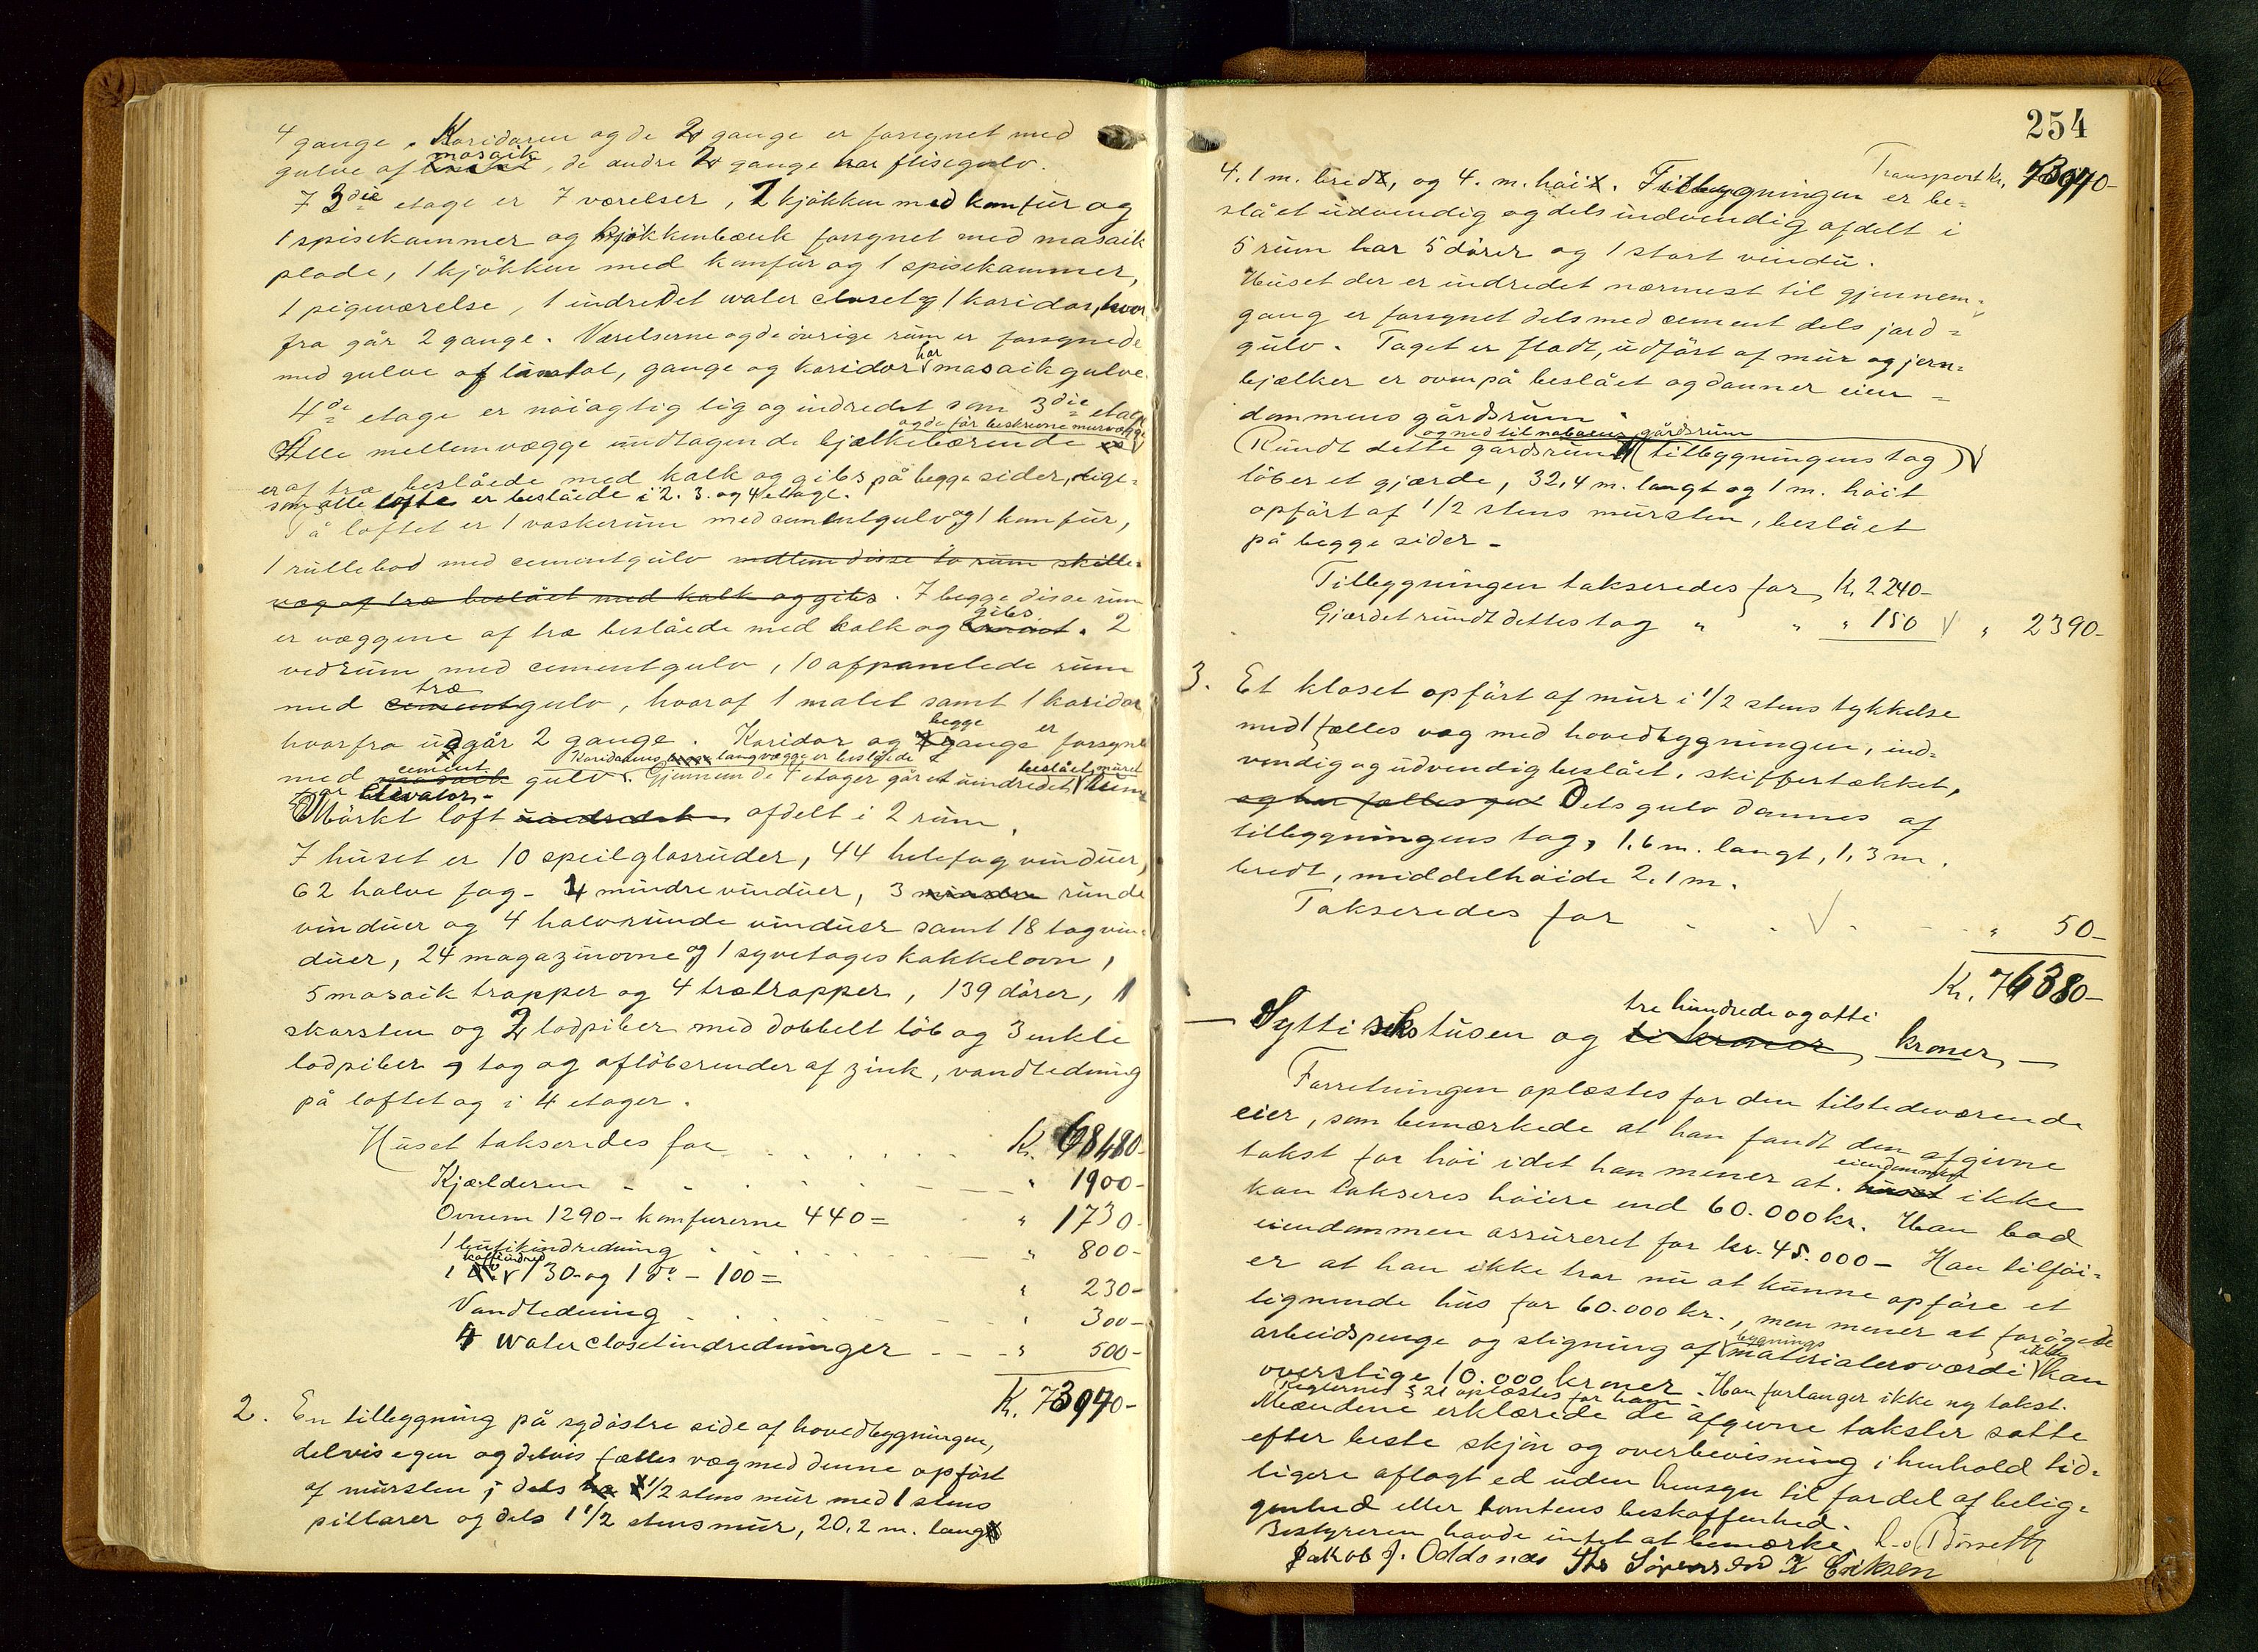 4 gange. Koridoren og de 2 gange er forsynet med
mosaik
gulve af , de andre 2 gange har flisegulv.
I 3die etage er 7 værelser, 1 kjøkken med komfür og
1 spisekammer og kjøkkenbænk forsynet med mosaik
plade, 1 kjøkken med komfür og 1 spisekammer,
1 pigeværelse, 1 indredet water closet og 1 koridor, hvor
fra går 2 gange. Værelserne og de øvrige rüm er forsynede
har
med gulve af , gange og koridor mosaikgulve.
4de etage er nøiagtig lig og indredet som 3die etage
og de før beskrevne murvægge
Alle mellemvægge undtagen de bjælkebærende
er af træ beslåede med kalk og gibs på begge sider, lige-
som alle lofte er beslåede i 2. 3. og 4 etage.
På loftet er 1 vaskerüm med cementgulv og 1 komfür,
1 rüllebod med cementgulv mellem disse to rüm skille-
væg af træ beslået med kalk og gibs. I begge disse rüm
gibs
er væggene af træ beslåede med kalk og cement. 2
vedrüm med cementgulv, 10 afpanelede rüm
træ
med cementgulv, hvoraf 1 malet samt 1 koridor
begge er
hvorfra üdgår 2 gange. Koridor og gange forsynet
cement Koridorens langvægge er beslåede beslået müret
med mosaik gulv. Gjennem de 4 etager går et uindredet rüm
for elevator.
Mørkt loft uindredet afdelt i 2 rüm.
I hüset er 10 speilglasrüder, 44 hele fag vindüer,
62 halve fag - 4 mindre vindüer, 3 mindre runde
vindüer og 4 halvründe vindüer samt 18 tagvin-
düer, 24 magazinovne og 1 syvetages kakkelovn,
5 mosaik trapper og 4 trætrapper, 139 dører, 1
skorsten og 2 lodpiber med dobbelt løb og 3 enkle
lodpiber, tag og afløbsrender af zink, vandledning
på loftet og i 4 etager.
Hüset takseredes for . . . . . . Kr. 68480-
Kjælderen - - . . . - - - " 1900-
Ovnene 1290- komfurerne 440 = " 1730-
1 butikindredning . . . . . " 800-
1 130- og 1 do - 100 = " 230-
Vandledning . . . . . . " 300-
4 water closetindredninger - - - " 500-
Kr. 73940-
2. En tilbygning på sydøstre side af hovedbygningen,
delvis egen og delvis fælles væg med denne opført
af mürsten i dels 1/2 stens mür med 1 stens
pillarer og dels 1 1/2 stens mür, 20.2 m. lang
254
Transport kr. 73940-
4.1 m. bred, og 4. m. høi. Tilbygningen er be-
slået udvendig og dels indvendig afdelt i
5 rüm har 5 dører og 1 stort vindü.
Hüset der er indredet nærmest til gjennem-
gang er forsynet dels med cement dels jord-
gülv. Taget er fladt, üdført af mür og jern-
bjælker er ovenpå beslået og danner eien-
dommens gårdsrüm.
og ned til naboens gårdsrüm
Rundt dette gårdsrüm (tilbygningens tag)
løber et gjærde, 32,4 m. langt og 1 m. høit
opført af 1/2 stens mürsten, beslået
på begge sider -
Tilbygningen takseredes for Kr. 2240-
Gjærdet rundt dettes tag " " " 150 " 2390-
3. Et kloset opført af mür i 1/2 stens tykkelse
med 1 fælles væg med hovedbygningen, ind-
vendig og udvendig beslået, skiffertækket,
og har fælles gul Dets gulv dannes af
tilbygningens tag, 1,6 m. langt, 1,3 m.
bredt, middelhøide 2.1 m.
Takseredes for - . . - - . " 50-
Kr. 76380-
tre hundrede og otti
- Sytti seks tusen og ti kroner kroner -
Forretningen oplæstes for den tilstedeværende
eier, som bemærkede at han fandt den afgivne
takst for høi idet han mener at
eiendommen
huset ikke
kan takseres høiere end 60.000 kr. Han bad
eiendommen assureret for kr. 45.000- Han tilføi-
er at han ikke tror nu at kunne opføre et
lignende hüs for 60.000 kr., men mener at forøgede
bygnings ikke
arbeidspenge og stigning af materialersværdi kan
overstige 10.000 kroner. Han forlanger ikke ny takst.
Reglernes § 21 oplæstes for ham
Mændene erklærede de afgivne takster satte
efter beste skjøn og overbevisning i henhold tid-
ligere aflagt ed uden hensyn til fordel af belig-
genhed eller tomtens beskaffenhed.
Bestyreren havde intet at bemærke.
Jakob J. Oddsnæs Ths Sørensen K Eriksen